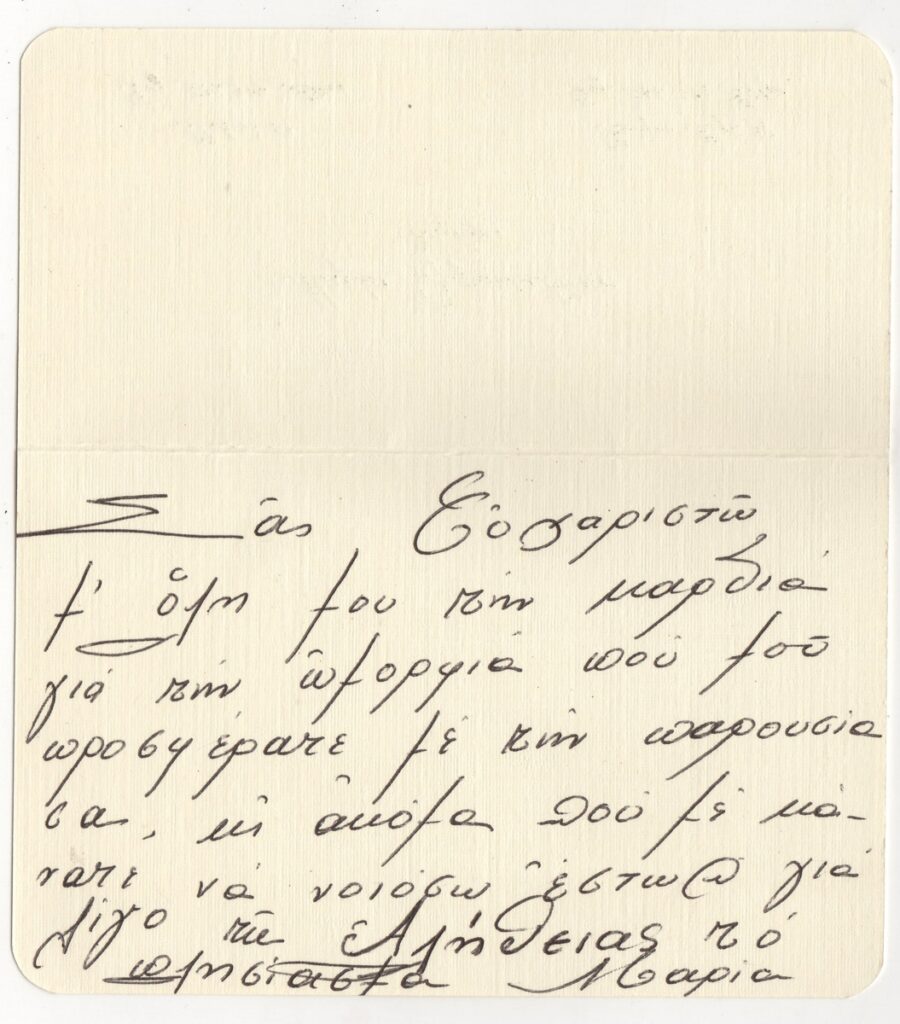 Σᾶς Εὐχαριστῶ
μ' ὅλη μου τήν καρδιά
γιά τήν ὠμορφιά πού μοῦ
προσφέρατε μέ τήν παρουσία
σας, κι ἀκόμα πού μέ κά-
νατε νά νοιόσω ἔστω καί γιά
λίγο τῆς Ἀλήθειας τό
πλησίασμα Μαρία